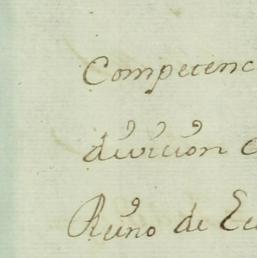 Competenc
divicion
Runo de Eu